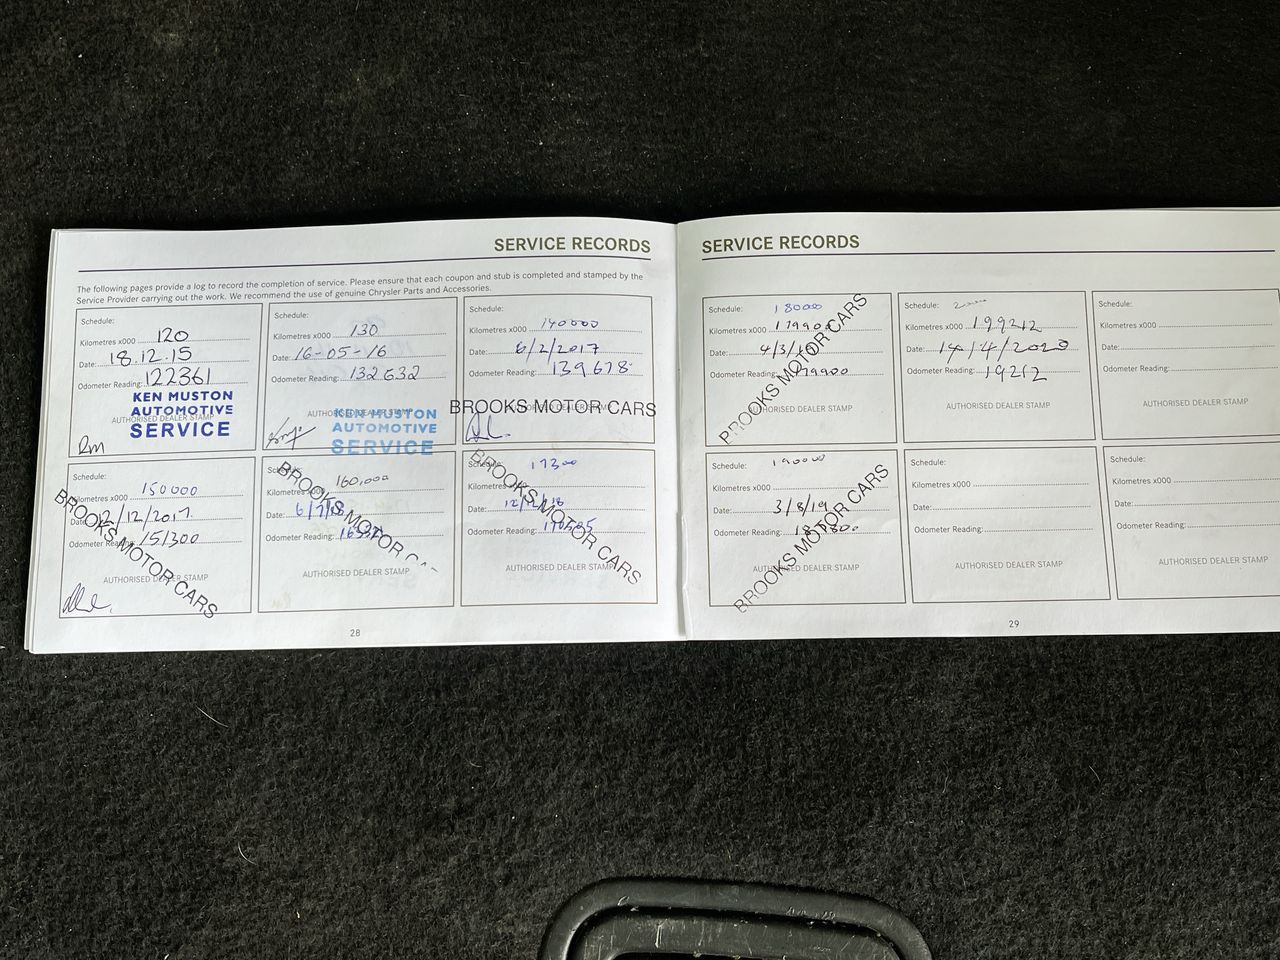 SERVICE RECORDS
The following pages provide a log to record the completion of service. Please ensure that each coupon and stub is completed and stamped by the
Service Provider carrying out the work. We recommend the use of genuine Chrysler Parts and Accessories.
Schedule:
Kilometres x000 120
Date: 18.12.15
Odometer Reading: 122361
KEN MUSTON
AUTOMOTIVE
AUTHORISED DEALER STAMP
SERVICE
Rm
Schedule:
Kilometres x000 130
Date: 16-05-16
Odometer Reading: 132632
AUTHORISED DEALER STAMP
KEN MUSTON
AUTOMOTIVE
SERVICE
Schedule:
Kilometres x000 140000
Date: 6/2/2017
Odometer Reading: 139678
AUTHORISED DEALER STAMP
BROOKS MOTOR CARS
Schedule:
Kilometres x000 150000
Date: 12/12/2017
Odometer Reading: 151300
AUTHORISED DEALER STAMP
BROOKS MOTOR CARS
Schedule:
Kilometres x000 160,000
Date: 6/7/18
Odometer Reading:
AUTHORISED DEALER STAMP
BROOKS MOTOR C
Schedule: 17300
Kilometres x000
Date: 12/12/18
Odometer Reading:
AUTHORISED DEALER STAMP
BROOKS MOTOR CARS
28
SERVICE RECORDS
Schedule: 18000
Kilometres x000 179900
Date: 4/3/
Odometer Reading: 179900
AUTHORISED DEALER STAMP
BROOKS MOTOR CARS
Schedule:
Kilometres x000 199212
Date: 14/4/2020
Odometer Reading: 19212
AUTHORISED DEALER STAMP
Schedule:
Kilometres x000
Date:
Odometer Reading:
AUTHORISED DEALER STAMP
Schedule: 190000
Kilometres x000
Date: 3/8/19
Odometer Reading:
AUTHORISED DEALER STAMP
BROOKS MOTOR CARS
Schedule:
Kilometres x000
Date:
Odometer Reading:
AUTHORISED DEALER STAMP
Schedule:
Kilometres x000
Date:
Odometer Reading:
AUTHORISED DEALER STAMP
29